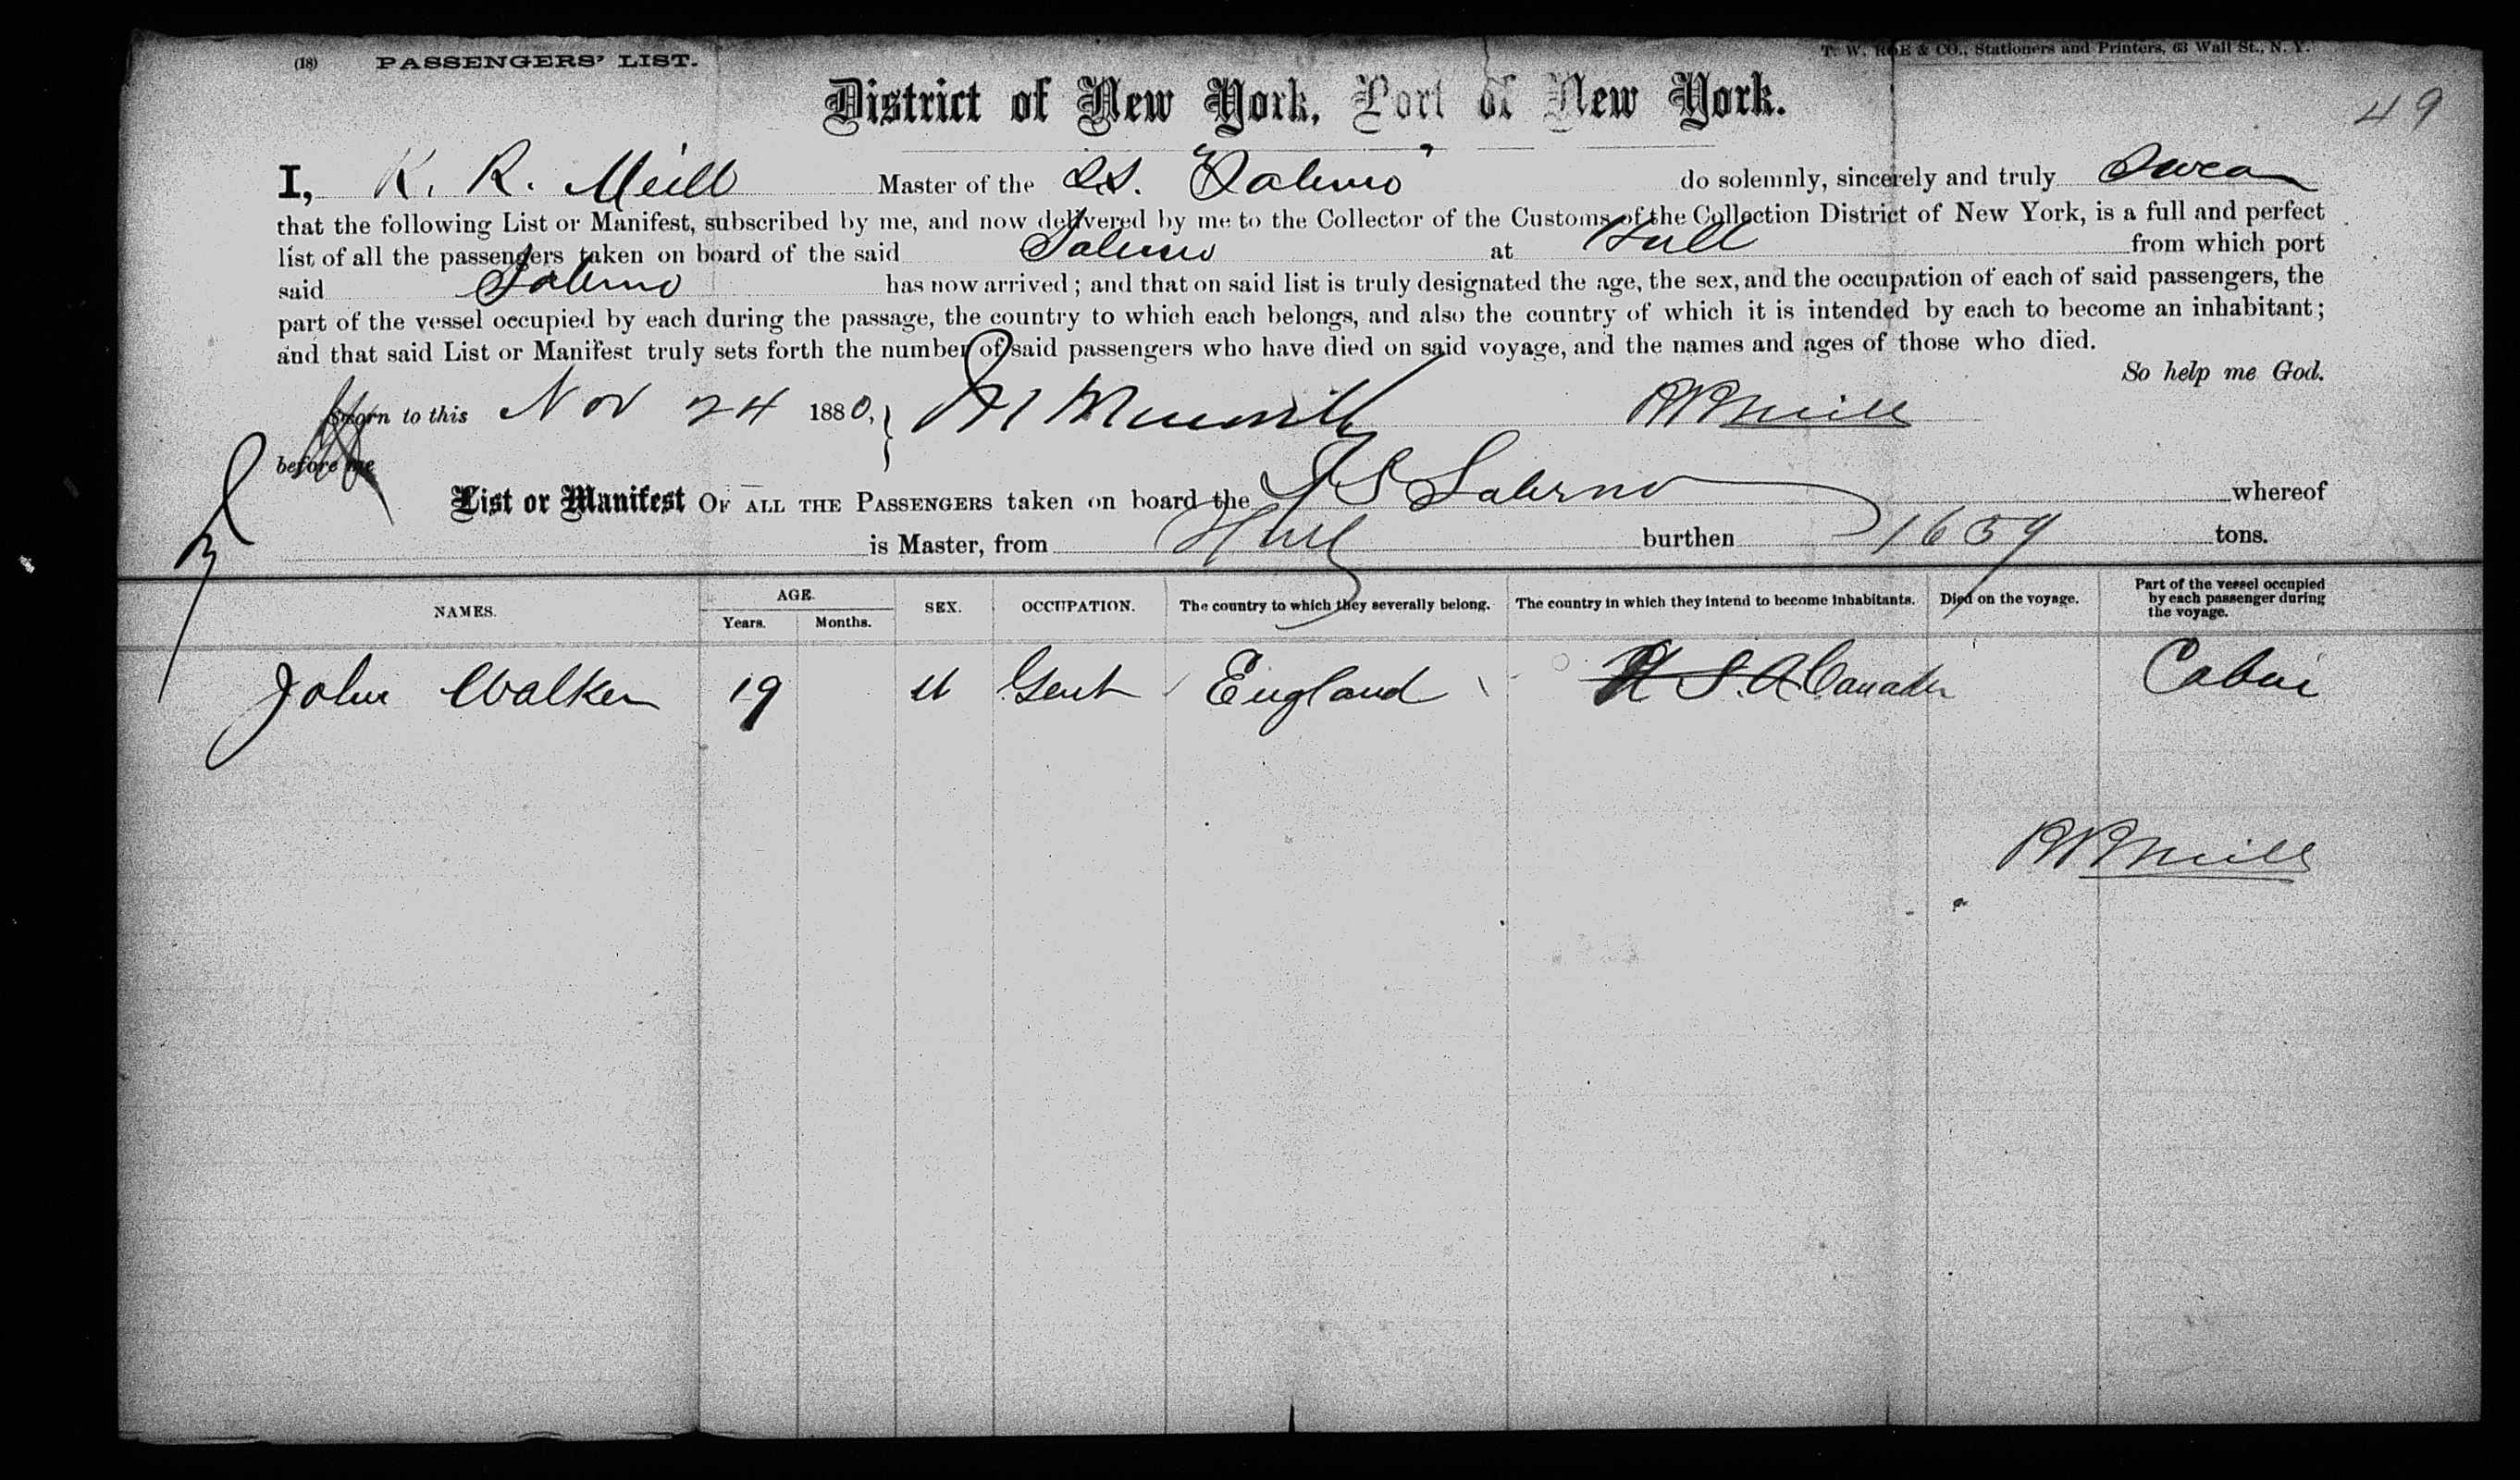 (18) PASSENGERS' LIST.
T. W. ROE & CO., Stationers and Printers, 63 Wall St., N. Y.
District of New York, Port of New York.
49
I, R. R. Meill Master of the S.S. "Salerno" do solemnly, sincerely and truly Swear
that the following List or Manifest, subscribed by me, and now delivered by me to the Collector of the Customs of the Collection District of New York, is a full and perfect
list of all the passengers taken on board of the said Salerno at Hull from which port
said Salerno has now arrived; and that on said list is truly designated the age, the sex, and the occupation of each of said passengers, the
part of the vessel occupied by each during the passage, the country to which each belongs, and also the country of which it is intended by each to become an inhabitant;
and that said List or Manifest truly sets forth the number of said passengers who have died on said voyage, and the names and ages of those who died.
So help me God.
Sworn to this Nov 24 1880, }
before me
List or Manifest OF ALL THE PASSENGERS taken on board the SS Salerno whereof
is Master, from Hull burthen 1659 tons.
NAMES. AGE. Years. Months. SEX. OCCUPATION. The country to which they severally belong. The country in which they intend to become inhabitants. Died on the voyage. Part of the vessel occupied by each passenger during the voyage.
John Walker 19 M Gent England U.S.A. Canada Cabin